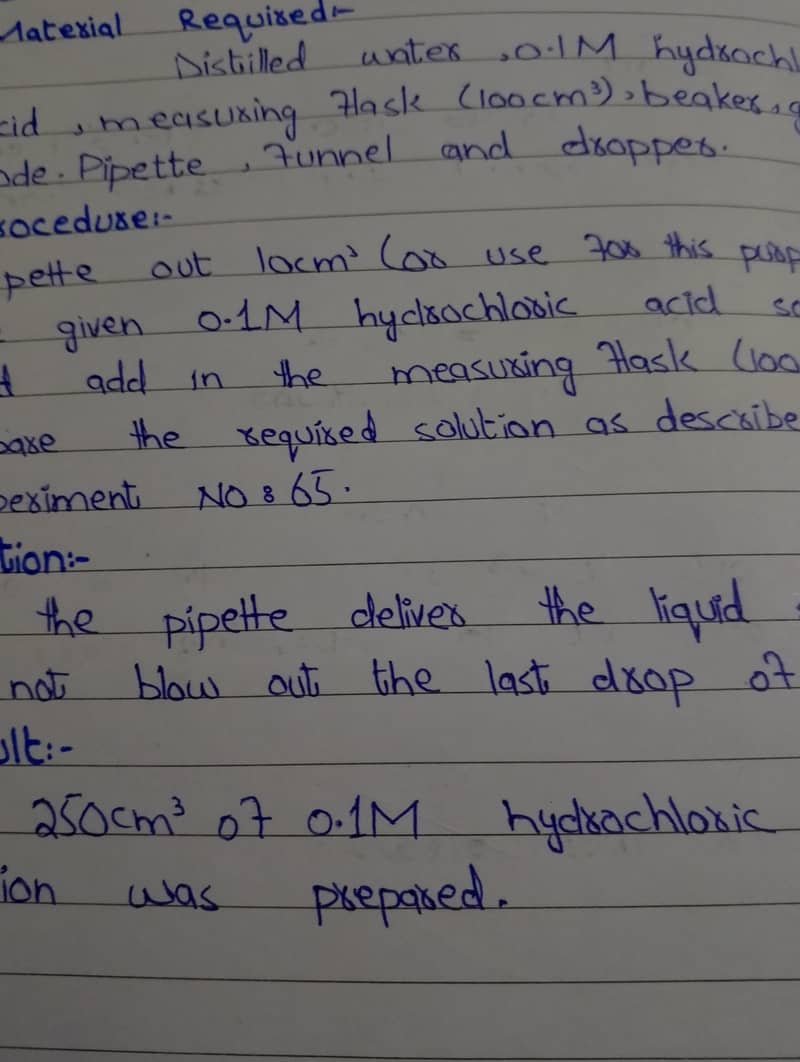 Material Required:-
Distilled water, 0.1M hydrochl
cid, measuring flask (100cm³), beaker, g
ode. Pipette, funnel and dropper.
rocedure:-
pette out 10cm³ (or use for this purp
given 0.1M hydrochloric acid so
d add in the measuring flask (100
pare the required solution as describe
periment No: 65.
tion:-
the pipette deliver the liquid
not blow out the last drop of
ult:-
250cm³ of 0.1M hydrochloric
ion was prepared.